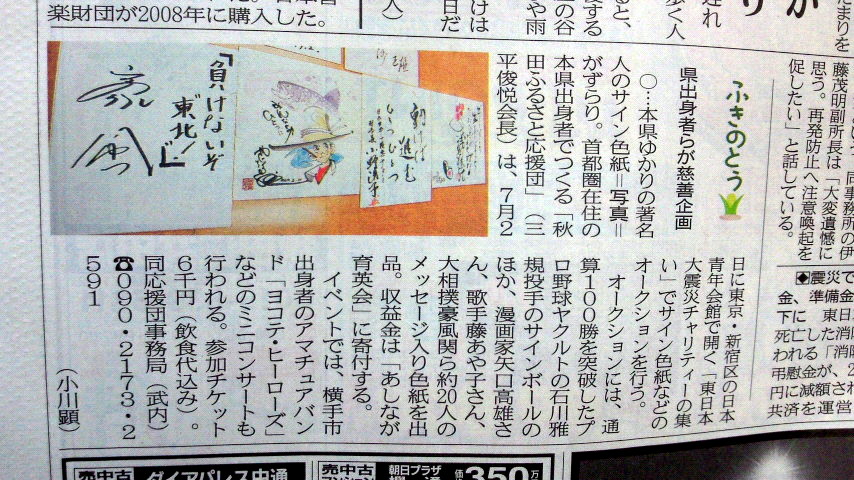 楽財団が2008年に購入した。
ふきのとう
県出身者らが慈善企画
○…本県ゆかりの著名
人のサイン色紙＝写真＝
がずらり。首都圏在住の
本県出身者でつくる「秋
田ふるさと応援団」（三
平俊悦会長）は、7月2
日に東京・新宿区の日本
青年会館で開く「東日本
大震災チャリティーの集
い」でサイン色紙などの
オークションを行う。
オークションには、通
算100勝を突破したプ
ロ野球ヤクルトの石川雅
規投手のサインボールの
ほか、漫画家矢口高雄さ
ん、歌手藤あや子さん、
大相撲豪風関ら約20人の
メッセージ入り色紙を出
品。収益金は「あしなが
育英会」に寄付する。
イベントでは、横手市
出身者のアマチュアバン
ド「ヨコテ・ヒーローズ」
などのミニコンサートも
行われる。参加チケット
6千円（飲食代込み）。
同応援団事務局（武内）
☎090・2173・2
591
（小川顕）
「負けないぞ
東北！」
豪風
藤茂明副所長は「大変遺憾に
思う。再発防止へ注意喚起を
促したい」と話している。
◆震災で
金、準備金
下に 東日
死亡した消
われる「消
弔慰金が、2
円に減額され
共済を運営
売中古
ダイアパレス中通
売中古
朝日プラザ
350万